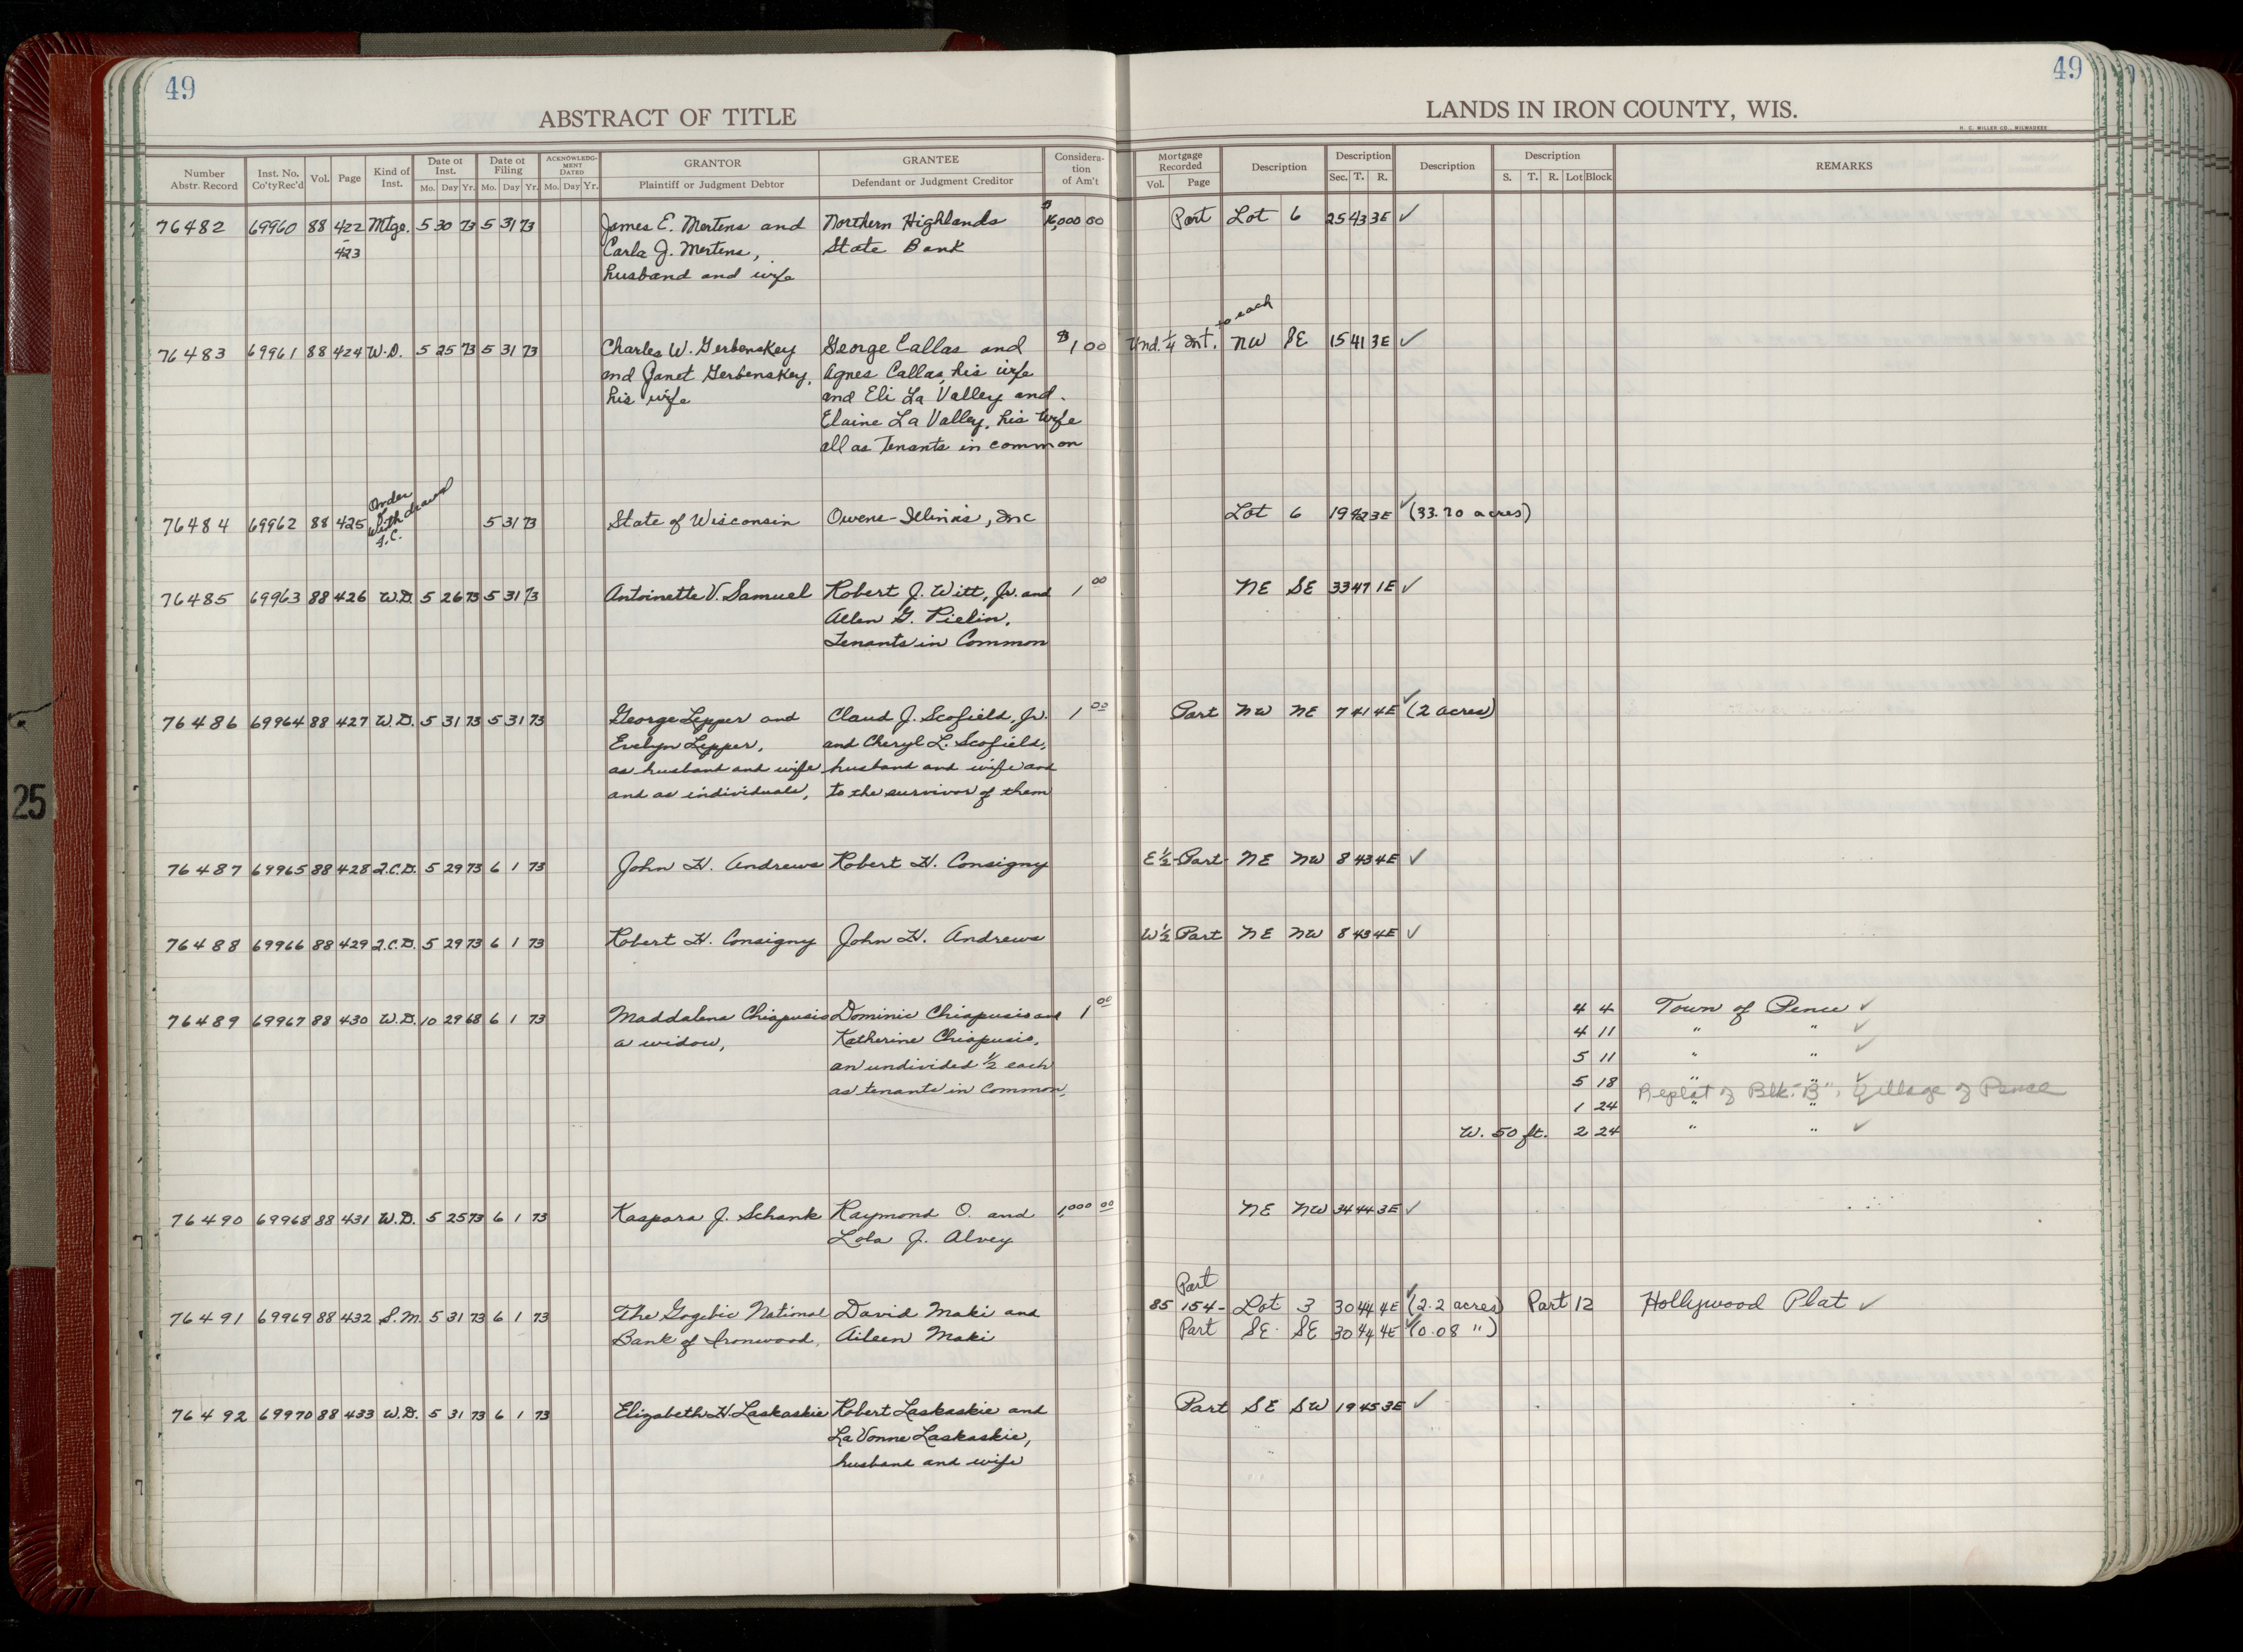 49
49
ABSTRACT OF TITLE
LANDS IN IRON COUNTY, WIS.
H. C. MILLER CO., MILWAUKEE
Number Abstr. Record | Inst. No. Co'ty Rec'd | Vol. | Page | Kind of Inst. | Date of Inst. Mo. Day Yr. | Date of Filing Mo. Day Yr. | ACKNOWLEDGMENT DATED Mo. Day Yr. | GRANTOR Plaintiff or Judgment Debtor | GRANTEE Defendant or Judgment Creditor | Consideration of Am't | Mortgage Recorded Vol. Page | Description | Description Sec. T. R. | Description | Description S. T. R. Lot Block | REMARKS
76482 69960 88 422 Mtge. 5 30 73 5 31 73 James E. Mertens and Northern Highlands $16,000 00 Part Lot 6 25 43 3E ✓
- 423 Carla J. Mertens, State Bank
husband and wife
to each
76483 69961 88 424 W.D. 5 25 73 5 31 73 Charles W. Gerbenskey George Callas and $1 00 Und. 1/4 Int. NW SE 15 41 3E ✓
and Janet Gerbenskey, Agnes Callas, his wife
his wife and Eli La Valley and
Elaine La Valley, his wife
all as Tenants in common
76484 69962 88 425 Order of Withdrawal F.C. 5 31 73 State of Wisconsin Owens-Illinois, Inc Lot 6 19 42 3E ✓ (33.70 acres)
76485 69963 88 426 W.D. 5 26 73 5 31 73 Antoinette V. Samuel Robert J. Witt, Jr. and 1 00 NE SE 33 47 1E ✓
Allen G. Pielin,
Tenants in Common
76486 69964 88 427 W.D. 5 31 73 5 31 73 George Lepper and Claud J. Scofield, Jr. 1 00 Part NW NE 7 41 4E ✓ (2 acres)
Evelyn Lepper, and Cheryl L. Scofield,
as husband and wife husband and wife and
and as individuals, to the survivor of them
76487 69965 88 428 Q.C.D. 5 29 73 6 1 73 John H. Andrews Robert H. Consigny E 1/2 - Part - NE NW 8 43 4E ✓
76488 69966 88 429 Q.C.D. 5 29 73 6 1 73 Robert H. Consigny John H. Andrews W 1/2 Part NE NW 8 43 4E ✓
76489 69967 88 430 W.D. 10 29 68 6 1 73 Maddalena Chiapusio Dominic Chiapusio and 1 00 4 4 Town of Pence ✓
a widow, Katherine Chiapusio, 4 11 " " ✓
an undivided 1/2 each 5 11 " " ✓
as tenants in common, 5 18 " ✓
Replat of Blk. "B", Village of Pence
1 24 " "
W. 50 ft. 2 24 " " ✓
76490 69968 88 431 W.D. 5 25 73 6 1 73 Kaspara J. Schank Raymond O. and 1,000 00 NE NW 34 44 3E ✓
Lola J. Alvey
Part
76491 69969 88 432 S.M. 5 31 73 6 1 73 The Gogebic National David Maki and 85 154 - Lot 3 30 44 4E ✓ (2.2 acres) Part 12 Hollywood Plat ✓
Bank of Ironwood, Aileen Maki Part SE SE 30 44 4E ✓ (0.08 ")
76492 69970 88 433 W.D. 5 31 73 6 1 73 Elizabeth H. Laskaskie Robert Laskaskie and Part SE SW 19 45 3E ✓
La Vonne Laskaskie,
husband and wife
25